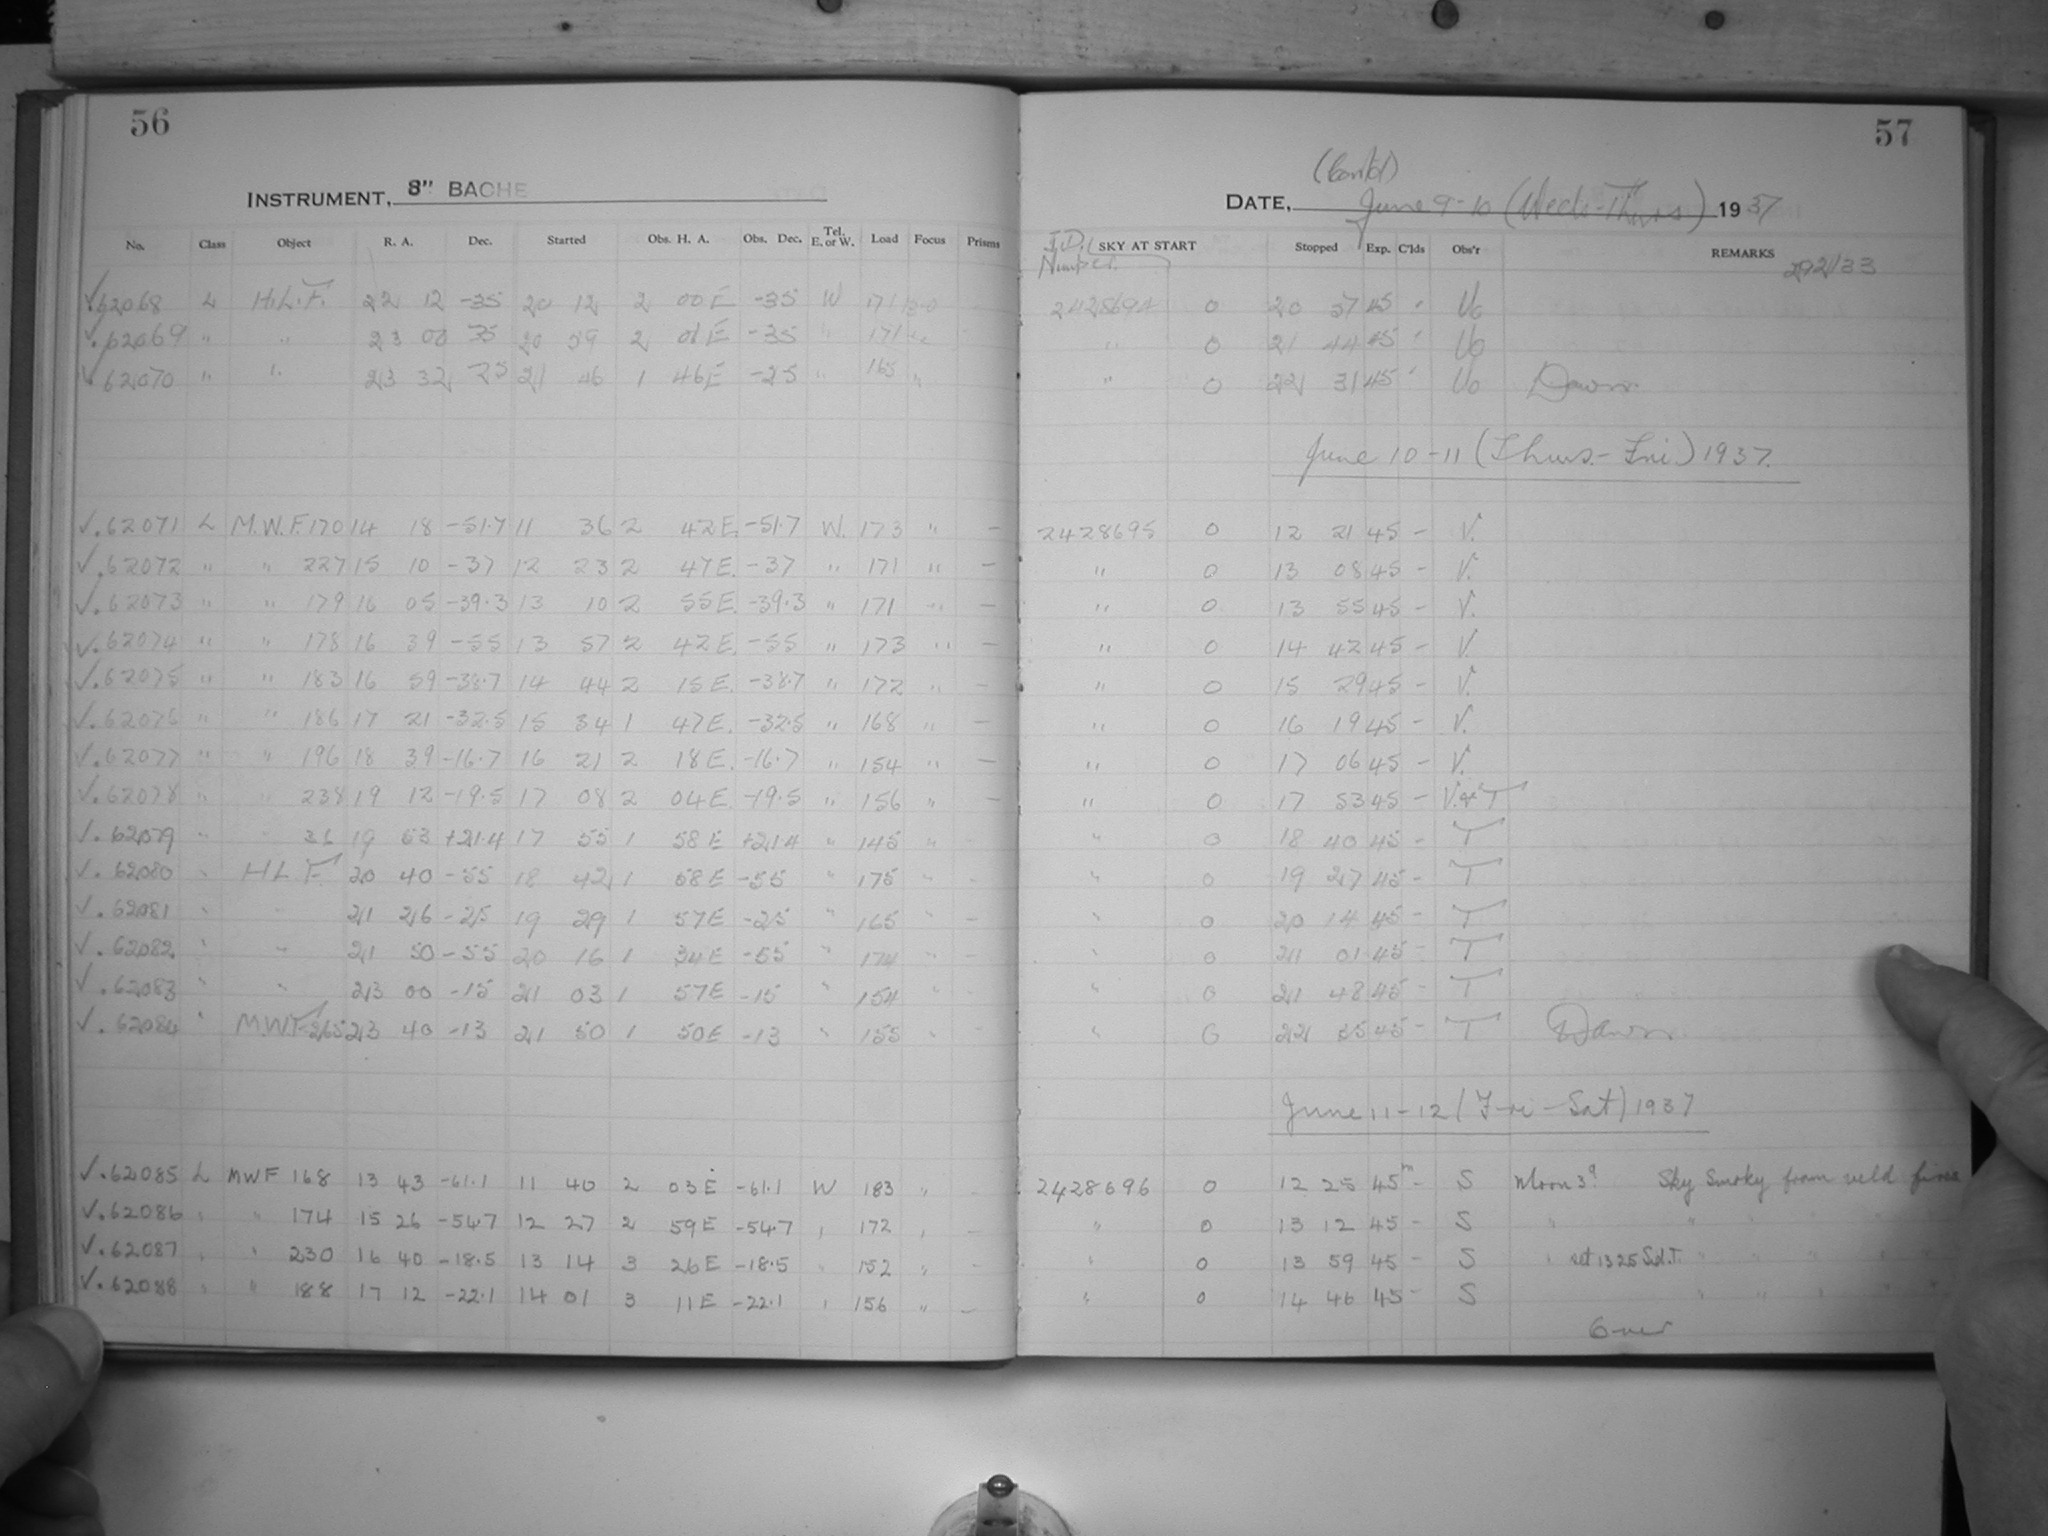 56
INSTRUMENT, 8" BACHE
No. Class Object R. A. Dec. Started Obs. H. A. Obs. Dec. Tel. E. or W. Load Focus Prisms
✓.62068 L H.L.F. 22 12 -35 20 12 2 00E -35 W 171
✓.62069 " " 23 00 35 20 59 2 01E -35 " 171
✓.62070 " " 23 32 25 21 46 1 46E -25 " 165 "
✓.62071 L M.W.F. 170 14 18 -51.7 11 36 2 42E. -51.7 W. 173 " —
✓.62072 " " 227 15 10 -37 12 23 2 47E. -37 " 171 " —
✓.62073 " " 179 16 05 -39.3 13 10 2 55E. -39.3 " 171 " —
✓.62074 " " 178 16 39 -55 13 57 2 42E. -55 " 173 " —
✓.62075 " " 183 16 59 -38.7 14 44 2 15E. -38.7 " 172 " —
✓.62076 " " 186 17 21 -32.5 15 34 1 47E. -32.5 " 168 " —
✓.62077 " " 196 18 39 -16.7 16 21 2 18E. -16.7 " 154 " —
✓.62078 " " 238 19 12 -19.5 17 08 2 04E. -19.5 " 156 " —
✓.62079 " " 36 19 53 +21.4 17 55 1 58E +21.4 " 145 " -
✓.62080 " HLF. 20 40 -55 18 42 1 58E -55 " 175 " -
✓.62081 " " 21 26 -25 19 29 1 57E -25 " 165 " -
✓.62082 " " 21 50 -55 20 16 1 34E -55 " 174 " -
✓.62083 " " 23 00 -15 21 03 1 57E -15 " 154 " -
✓.62084 " MWF 265 23 40 -13 21 50 1 50E -13 " 155 " -
✓.62085 L MWF 168 13 43 -61.1 11 40 2 03E -61.1 W 183 " -
✓.62086 " " 174 15 26 -54.7 12 27 2 59E -54.7 " 172 " -
✓.62087 " " 230 16 40 -18.5 13 14 3 26E -18.5 " 152 " -
✓.62088 " " 188 17 12 -22.1 14 01 3 11E -22.1 " 156 " -
57
(Contd)
DATE, June 9-10 (Weds-Thurs) 1937
J.D. Number. SKY AT START Stopped Exp. C'lds Obs'r REMARKS
2428694 0 20 57 45 Uo
" 0 21 44 45 Uo
" 0 22 31 45 Uo Dawn.
June 10-11 (Thurs.-Fri) 1937.
2428695 0 12 21 45 - V.
" 0 13 08 45 - V.
" 0 13 55 45 - V.
" 0 14 42 45 - V.
" 0 15 29 45 - V.
" 0 16 19 45 - V.
" 0 17 06 45 - V.
" 0 17 53 45 - V.&T
" 0 18 40 45 - T
" 0 19 27 45 - T
" 0 20 14 45 - T
" 0 21 01 45 - T
" 0 21 48 45 - T
" 0 22 35 45 - T Dawn.
June 11-12 (Fri-Sat) 1937
2428696 0 12 25 45m - S Moon 3d Sky Smoky from veld fires
" 0 13 12 45 - S " " " " "
" 0 13 59 45 - S " set 1325 Sid.T. " " " "
" 0 14 46 45 - S " " " "
Over